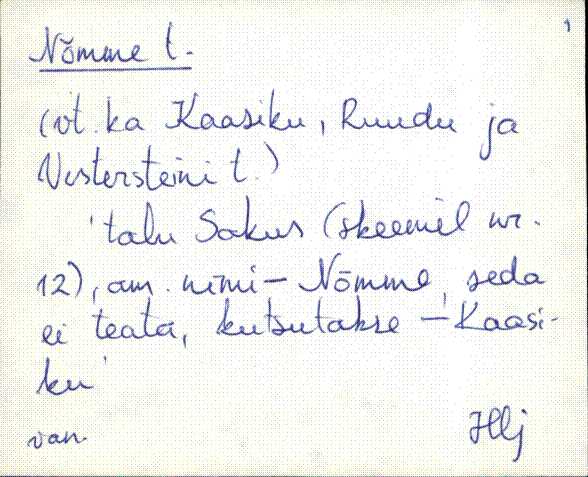 1
Nõmme t.
(vt. ka Kaasiku, Ruudu ja
Vestersteini t.)
'talu Sakus (skeemil nr.
12), am. nimi – Nõmme, seda
ei teata, kutsutakse – Kaasi-
ku'
van.
Hlj